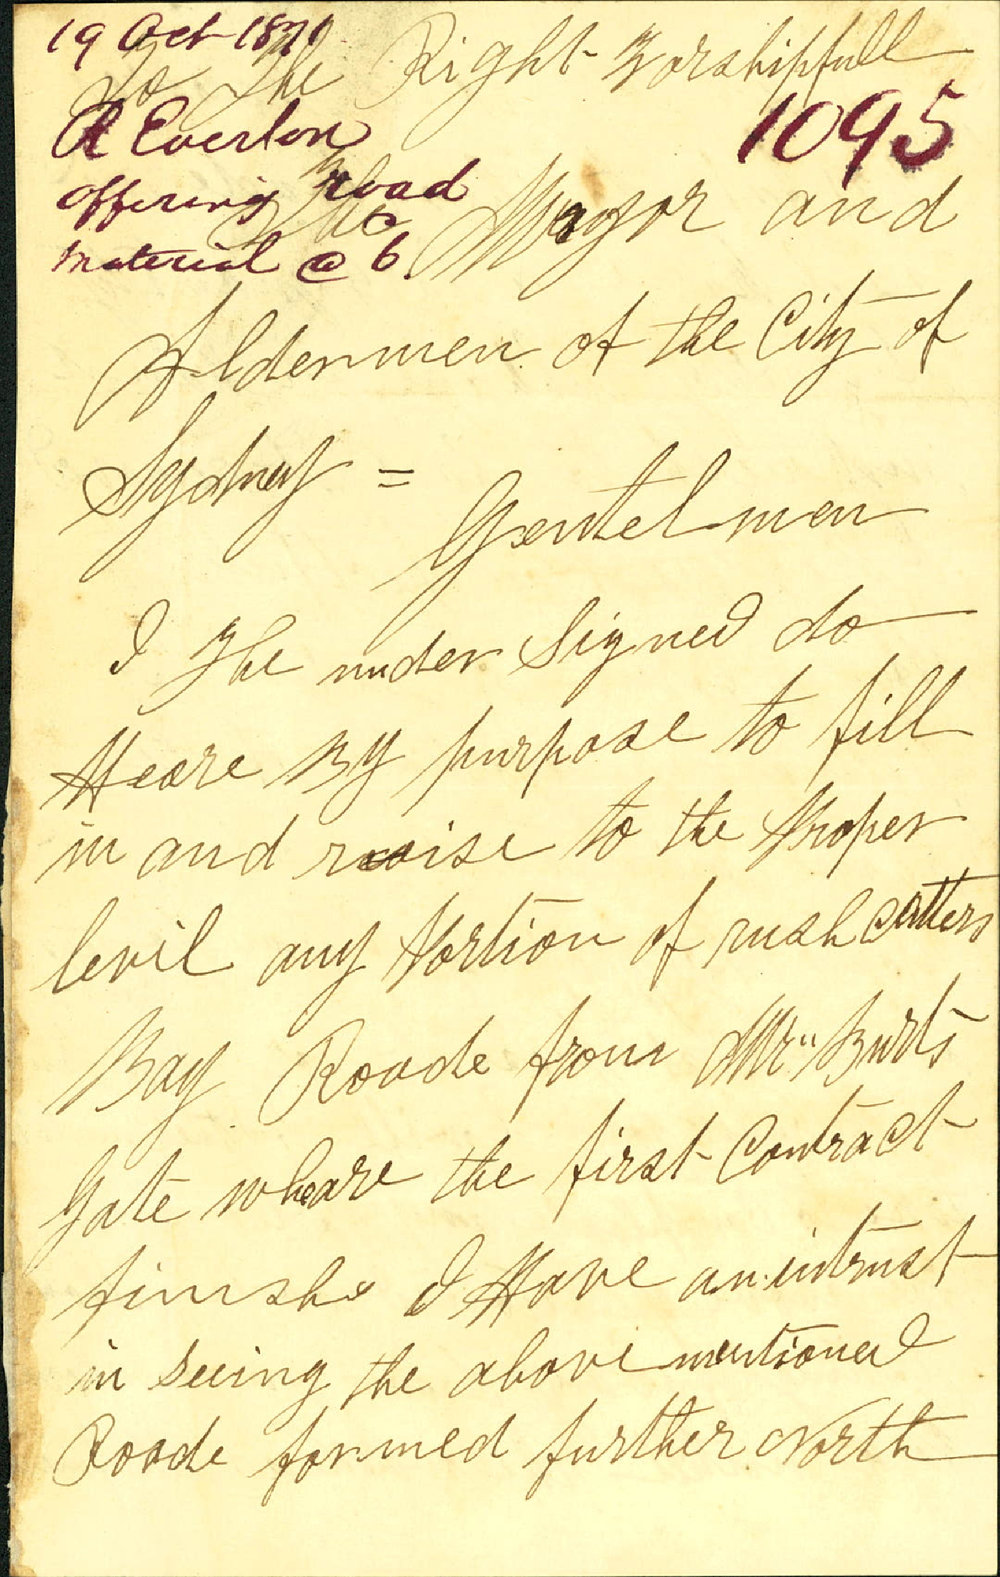 19 Oct 1871
To The Right Worshipfull
R Everton
1095
offering road
material @ 6
The Mayor and
Aldermen of the City of
Sydney =
Gentelmen
I The under Signed do
Heare By purpose to fill
in and raise to the Proper
levil any Portion of rushcutters
Bay Roade from Mr Burts
Gate wheare the first Contract
finsh I Have an intrust
in Seeing the above mentioned
Roade formed further North